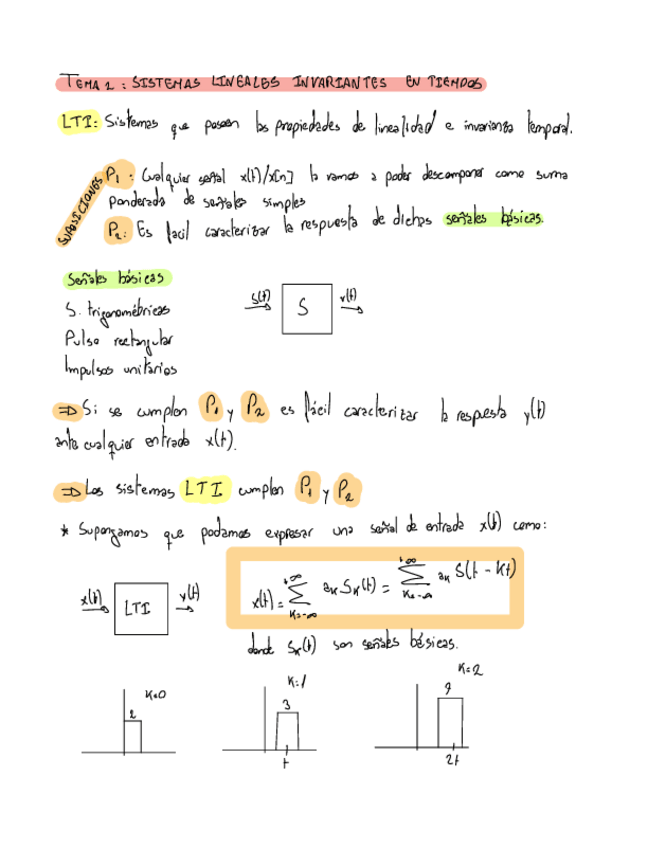 TEMA 2: SISTEMAS LINEALES INVARIANTES EN TIEMPOS
LTI: Sistemas que poseen las propiedades de linealidad e invarianza temporal.
SUPOSICIONES
P1: Cualquier señal x(t)/x[n] la vamos a poder descomponer como suma
ponderada de señales simples
P2: Es facil caracterizar la respuesta de dichas señales básicas.
Señales básicas
S. trigonométricas
Pulso rectangular
Impulsos unitarios
S(t) S y(t)
⇒ Si se cumplen P1 y P2 es fácil caracterizar la respuesta y(t)
ante cualquier entrada x(t).
⇒ Los sistemas LTI cumplen P1 y P2
* Supongamos que podamos expresar una señal de entrada x(t) como:
x(t) LTI y(t)
x(t) = ∑_{K=-∞}^{+∞} aK SK(t) = ∑_{K=-∞}^{+∞} aK S(t - Kt)
donde SK(t) son señales básicas.
K=0
2
K=1
3
t
K=2
2t